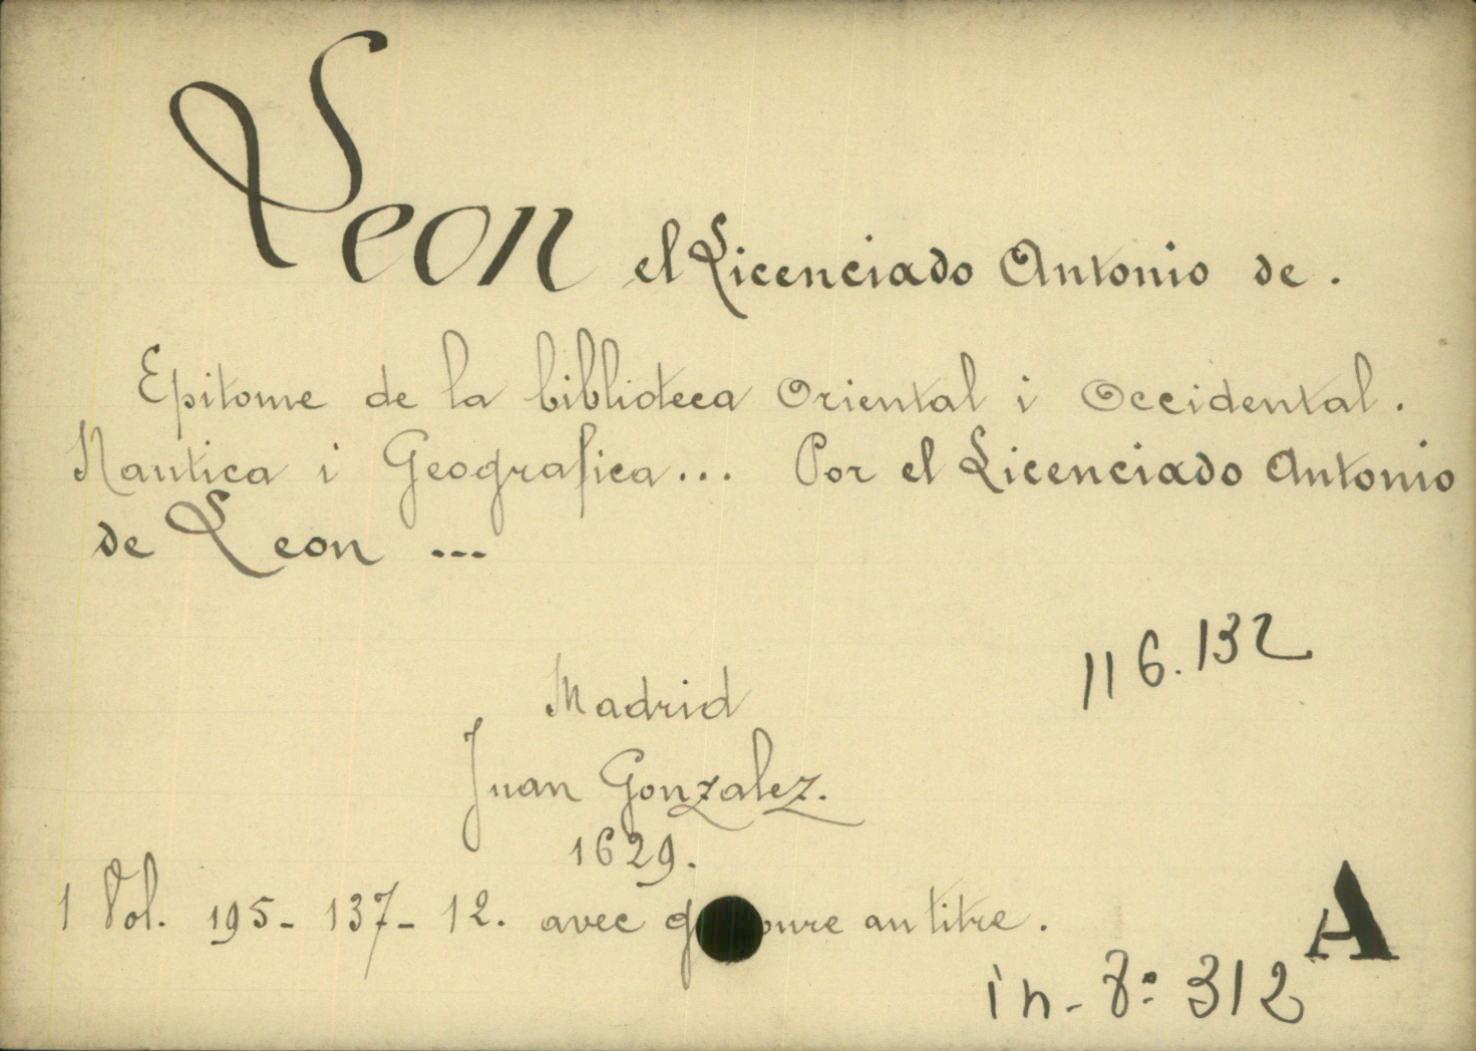 Leon el Licenciado Antonio de.
Epitome de la biblioteca Oriental i Occidental.
Nautica i Geografica... Por el Licenciado Antonio
de Leon ...
116.132
Madrid
Juan Gonzalez.
1629.
1 Vol. 195-137-12. avec au titre.
A
in-8º 312